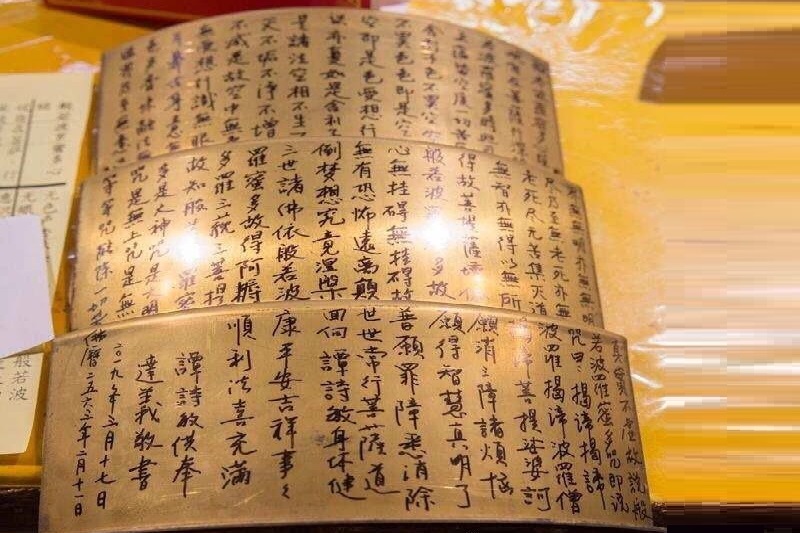 舍利子色不異空
不異色色即是空
空即是色受想行
識亦復如是舍利子
是諸法空相不生
不垢不淨不增
不減是故空中無
無受想行識無眼
色聲香味觸法無
無無明亦無無明
盡乃至無老死亦無
老死尽無苦集灭道
無智亦無得以無所
得故菩提薩埵依
般若波多故
心無挂礙無挂礙故
無有恐怖遠离顛
倒夢想究竟涅槃
三世諸佛依般若波
羅蜜多故得阿耨
多羅三藐三菩提
故知般羅蜜
多是大神咒是大明
咒是無上咒是無
等等咒能除一切苦
真實不虛故說般
若波羅蜜多咒即說
咒曰揭諦揭諦
波羅揭諦波羅僧
揭諦菩提娑婆訶
願消三障諸煩惱
願得智慧真明了
普願罪障悉消除
世世常行菩薩道
回向譚詩敏身体健
康平安吉祥事々
順利法喜充滿
譚詩敏供奉
達義敬書
二〇一九年三月十七日
佛曆二五六三年二月十一日
般若波